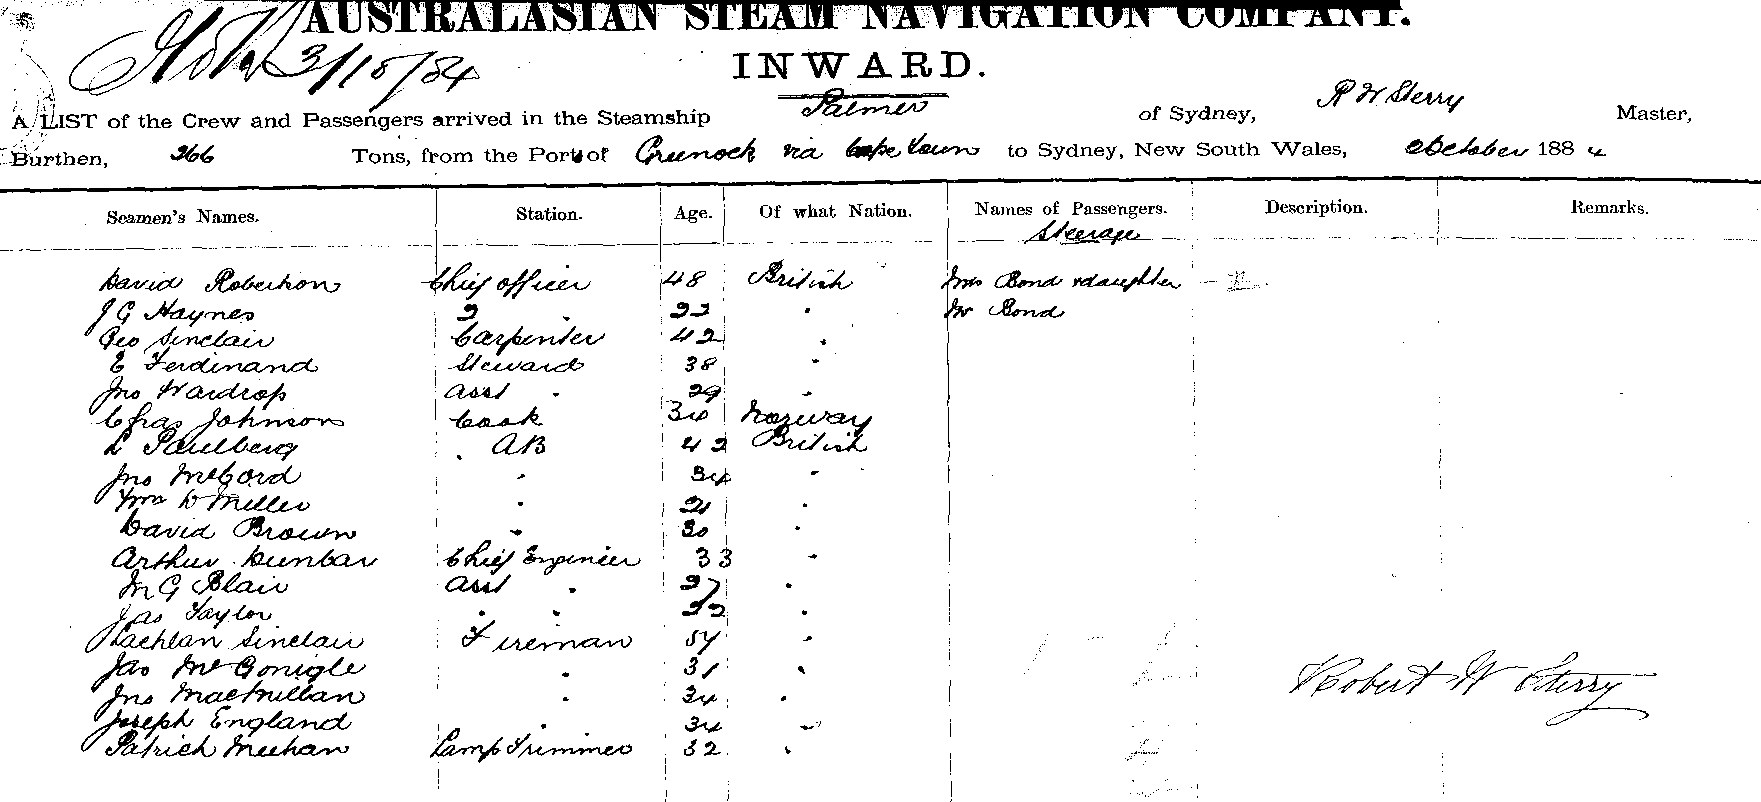 AUSTRALASIAN STEAM NAVIGATION COMPANY.
3/10/84
INWARD.
A LIST of the Crew and Passengers arrived in the Steamship Palmer of Sydney, R W Sterry Master,
Burthen, 266 Tons, from the Port of Greenock via Cape Town to Sydney, New South Wales, October 1884
Seamen's Names. Station. Age. Of what Nation. Names of Passengers. Description. Remarks.
Steerage
David Robertson Chief Officer 48 British Mrs Bond & daughter
J G Haynes 2 " 22 " Mr Bond
Geo Sinclair Carpenter 42 "
E Ferdinand Steward 38 "
Jno Wardrop Asst " 29 "
Chas Johnson Cook 34 Norway
L Paulberg AB 42 British
Jno McCord " 34 "
Wm D Miller " 21 "
David Brown " 30 "
Arthur Dunbar Chief Engineer 33 "
M G Blair Asst " 27 "
Jas Taylor " " 22 "
Lachlan Sinclair Fireman 54 "
Jas McGonigle " 31 "
Jno MacMillan " 34 "
Joseph England " 34 "
Patrick Meehan Lamp Trimmer 32 "
Robert W Sterry